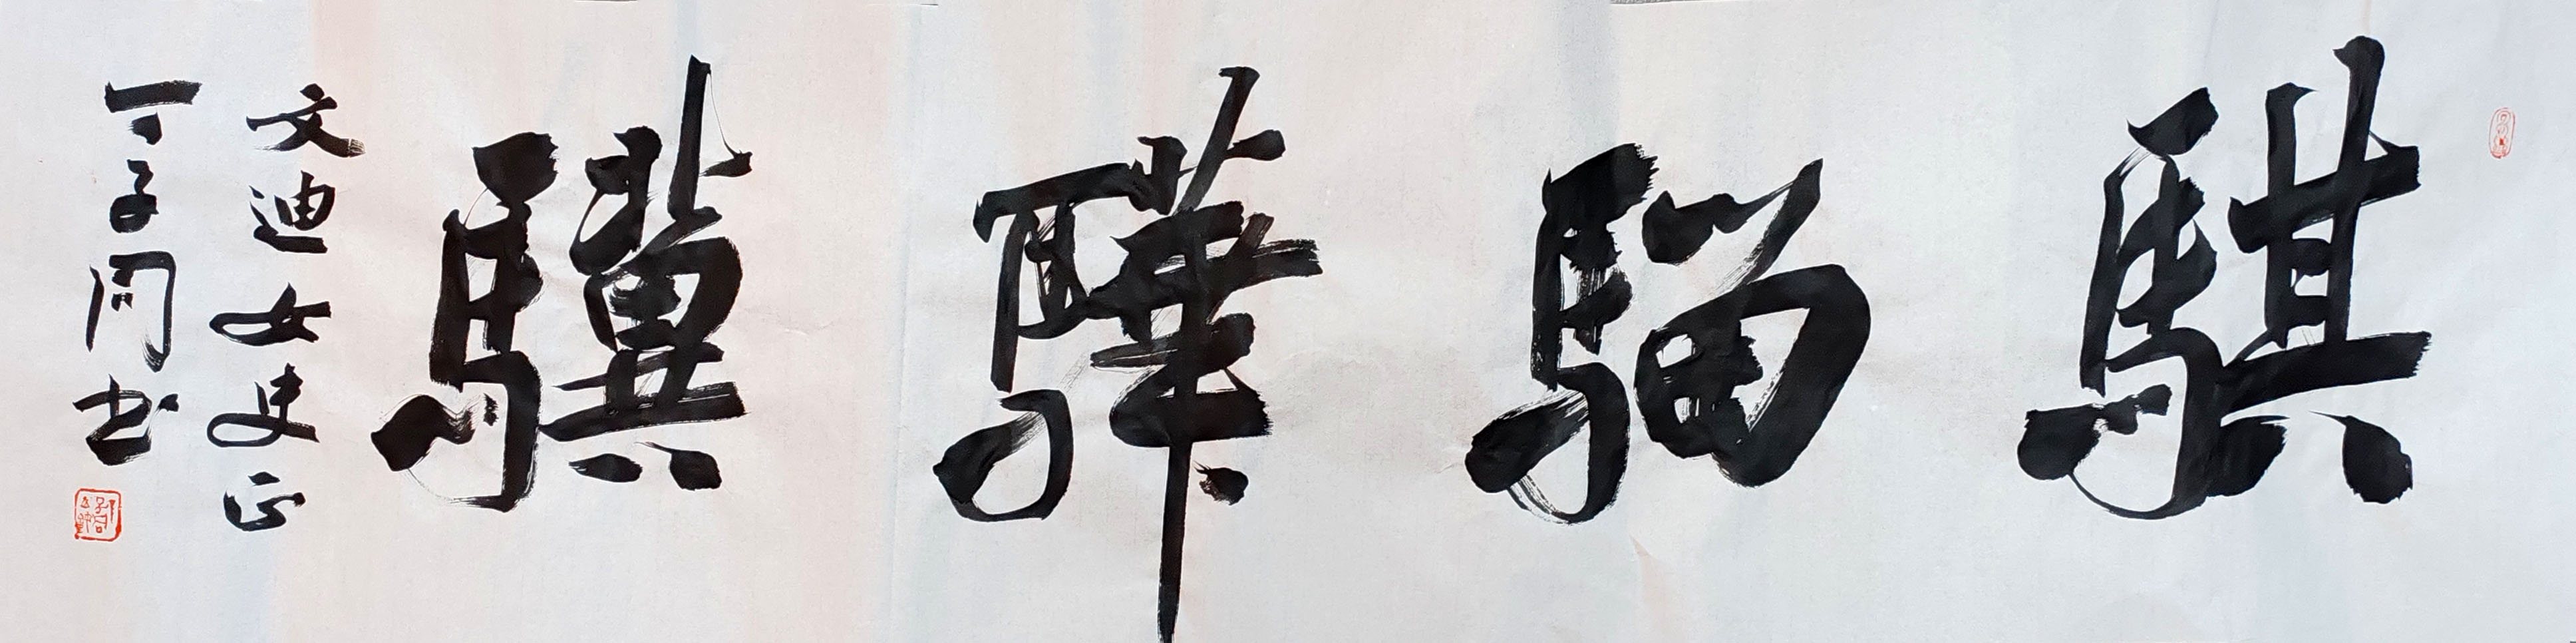 騏騮驊驥
文迪女史正
丁子周书